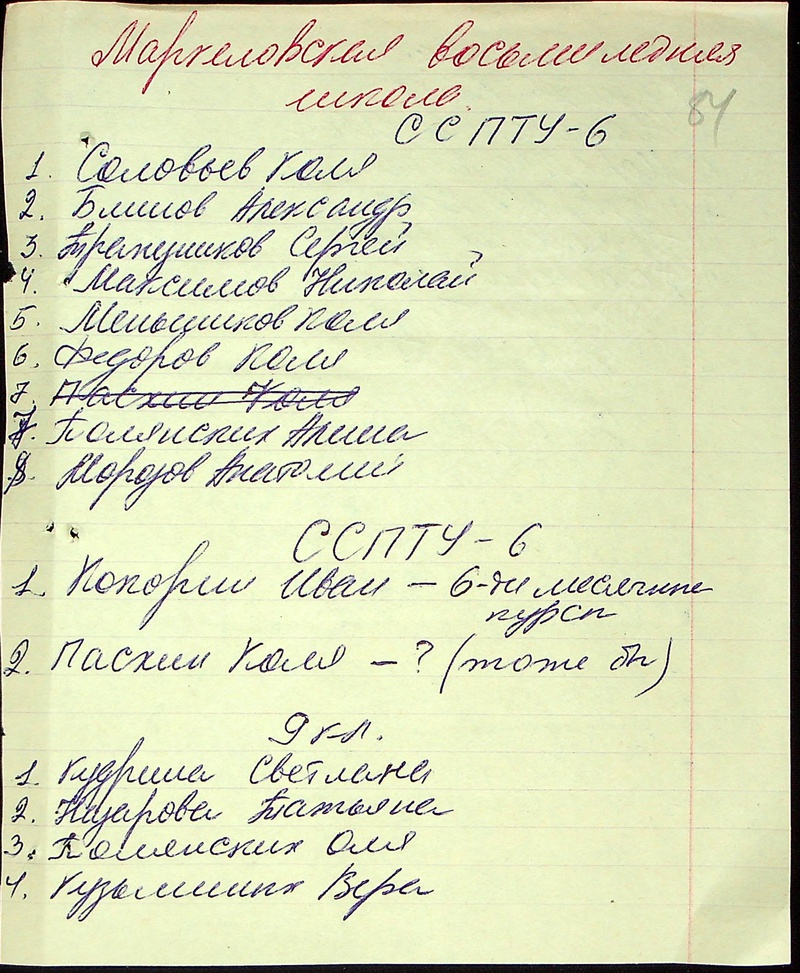 Маркеловская восьмилетняя
школа.
84
ССПТУ-6
1. Соловьев Коля
2. Блинов Александр
3. Трапезников Сергей
4. Максимов Николай
5. Меньшиков Коля
6. Федоров Коля
7. Пасхин Коля
7. Полянских Алеша
8. Морозов Анатолий
ССПТУ-6
1. Кокорин Иван – 6-ти месячные
курсы
2. Пасхин Коля – ? (тоже бы)
9 кл.
1. Кудрина Светлана
2. Назарова Татьяна
3. Полянских Оля
4. Кузьминых Вера